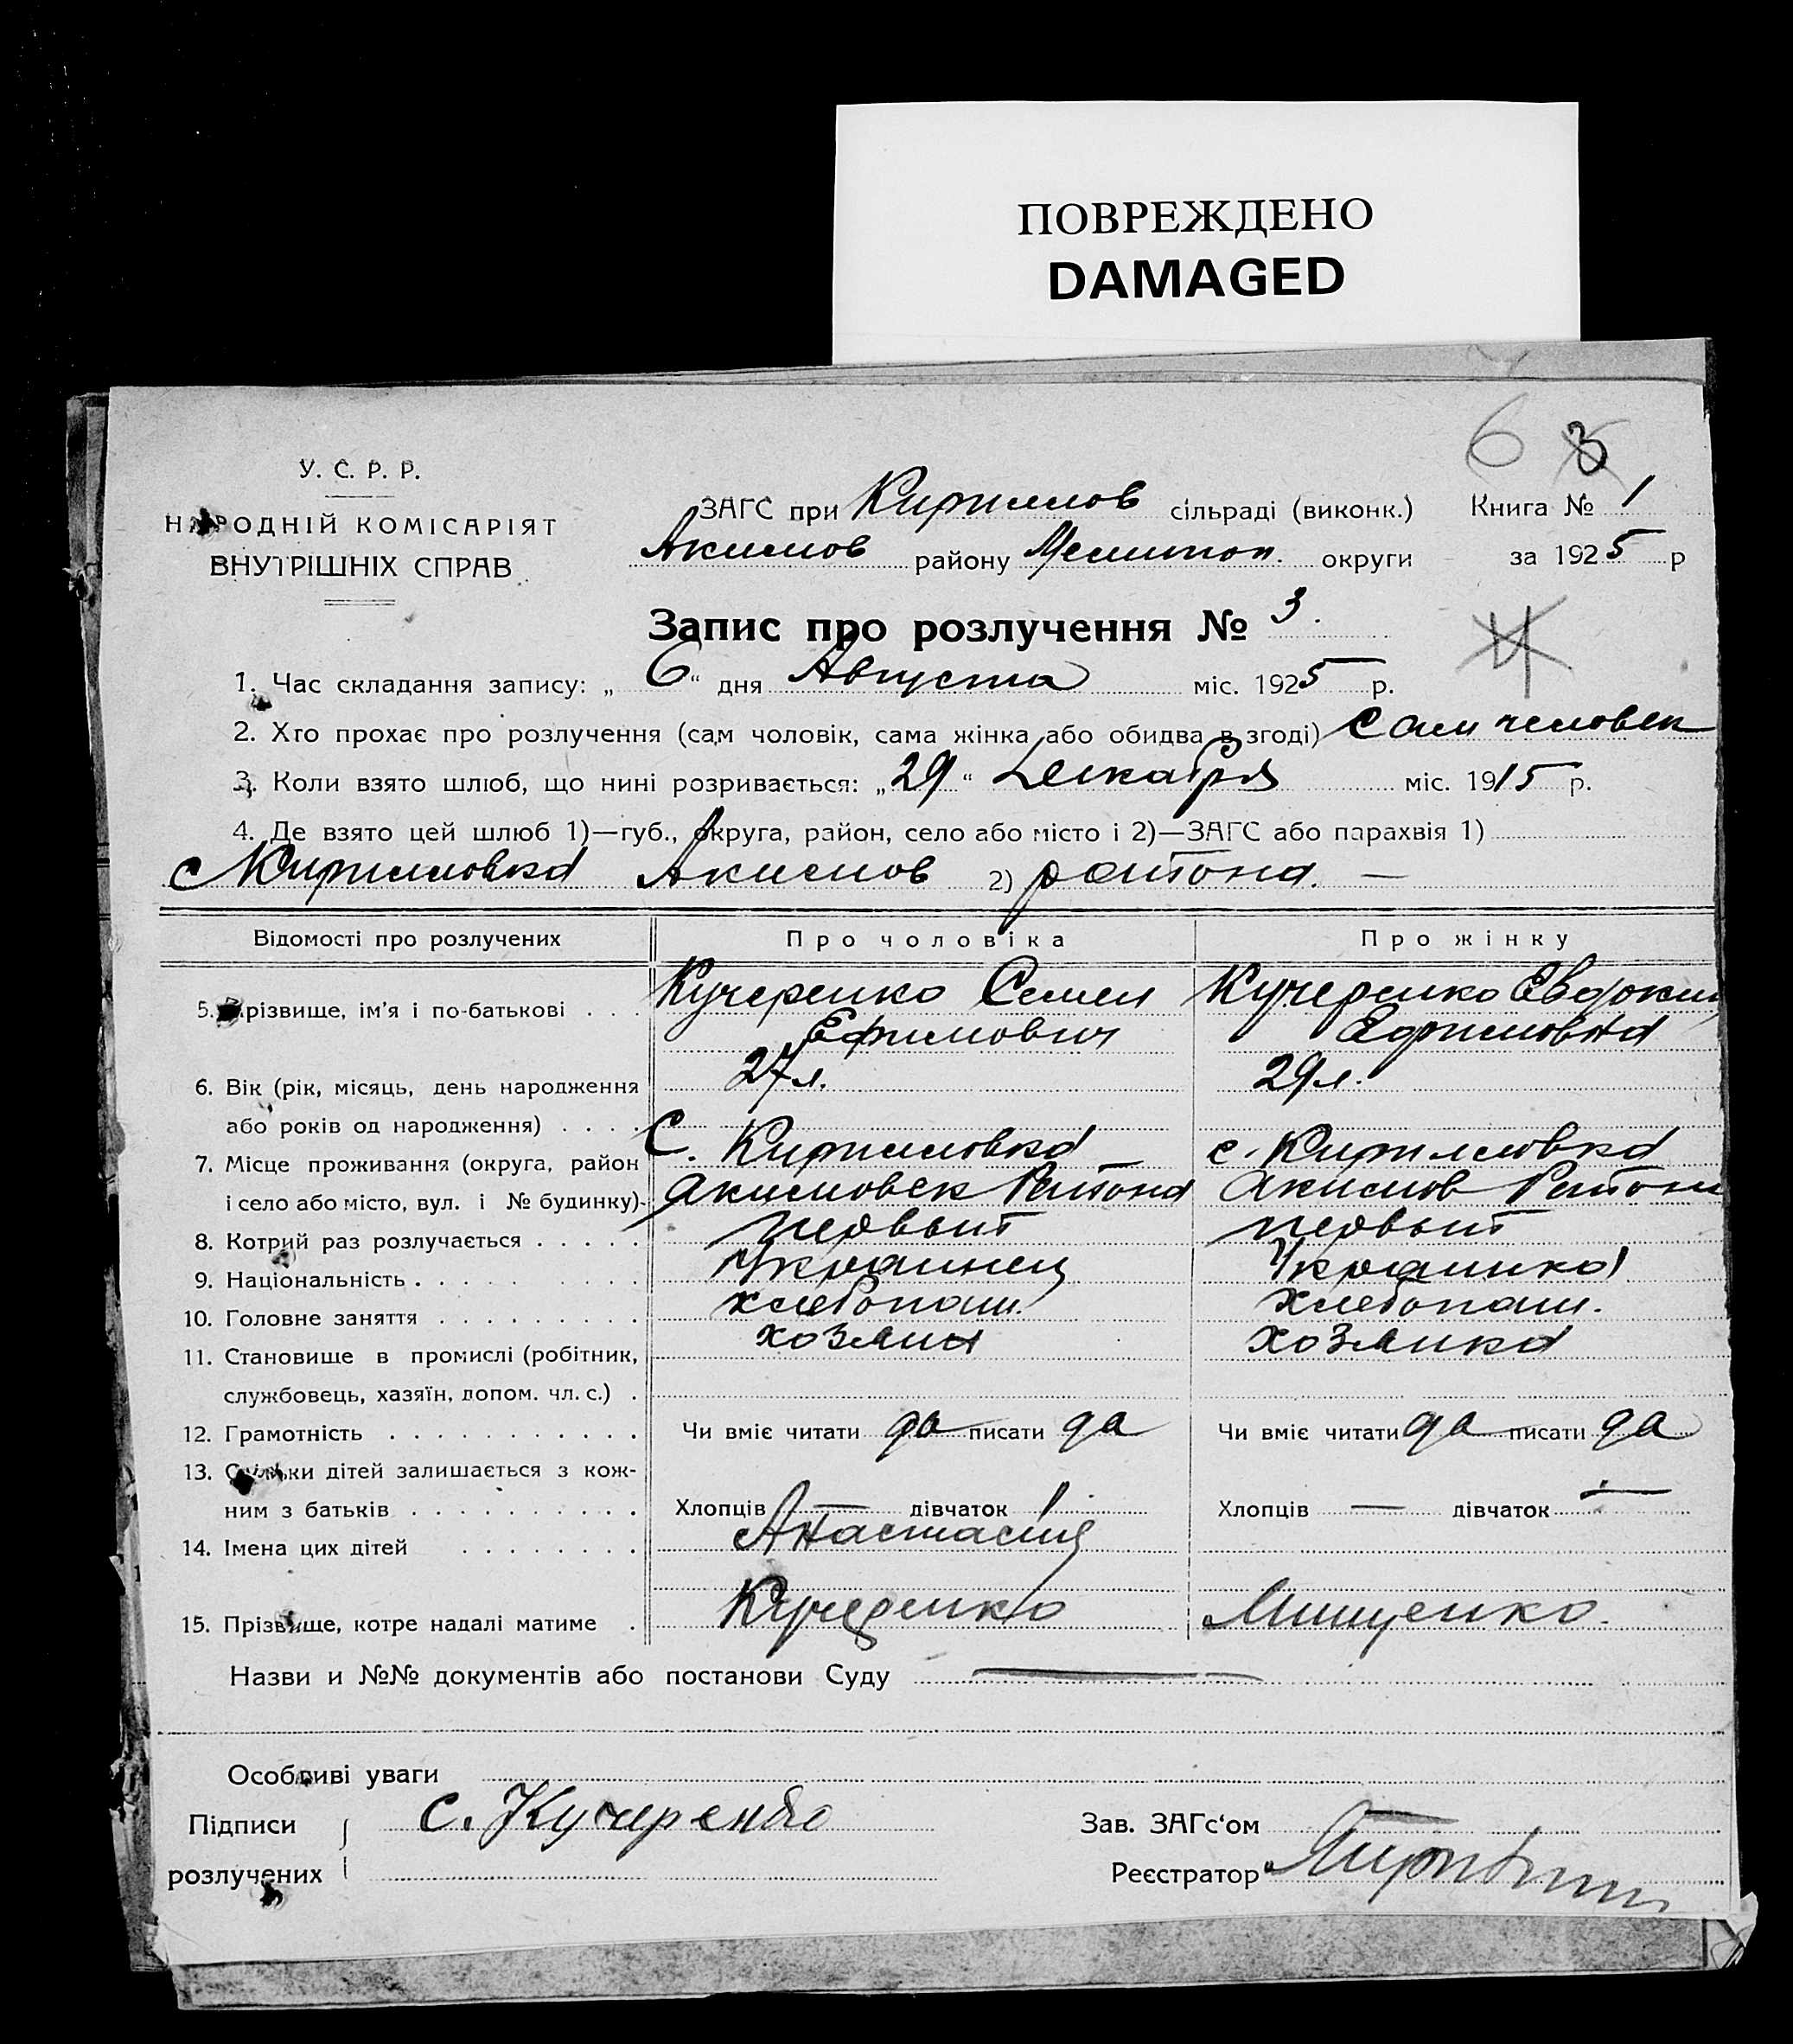 ПОВРЕЖДЕНО
DAMAGED
6 3
У. С. Р. Р.
НАРОДНІЙ КОМІСАРІЯТ
ВНУТРІШНІХ СПРАВ
ЗАГС при Кириллов сільраді (виконк.) Книга № 1
Акимов району Мелитоп. округи за 1925 р
Запис про розлучення № 3.
1. Час складання запису: „6“ дня Августа міс. 1925 р.
2. Хто прохає про розлучення (сам чоловік, сама жінка або обидва в згоді) Сам человек
3. Коли взято шлюб, що нині розривається: „29“ Декабря міс. 1915 р.
4. Де взято цей шлюб 1)—губ., округа, район, село або місто і 2)—ЗАГС або парахвія 1)
с Кирилловка Акимов 2) района. —
Відомості про розлучених Про чоловіка Про жінку
5. Прізвище, ім'я і по-батькові . . . Кучеренко Семен Кучеренко Евдоким
Ефимович Ефимовна
6. Вік (рік, місяць, день народження 27 л. 29 л.
або років од народження) . . . .
7. Місце проживання (округа, район С. Кирилловка с. Кирилловка
і село або місто, вул. і № будинку) Акимовск Района Акимов Район
8. Котрий раз розлучається . . . . . первый первый
9. Національність . . . . . . . . Украинец Украинка
10. Головне заняття . . . . . . . . . хлебопаш. хлебопаш.
11. Становище в промислі (робітник, хозяин хозяйка
службовець, хазяїн, допом. чл. с.) .
12. Грамотність . . . . . . . . . . . Чи вміє читати да писати да Чи вміє читати да писати да
13. Скільки дітей залишається з кож-
ним з батьків . . . . . . . . . . Хлопців — дівчаток 1 Хлопців — дівчаток —
14. Імена цих дітей . . . . . . . . Анастасия
15. Прізвище, котре надалі матиме . Кучеренко Мищенко.
Назви и №№ документів або постанови Суду —
Особливі уваги
Підписи С. Кучеренко Зав. ЗАГс‘ом
розлучених Реєстратор